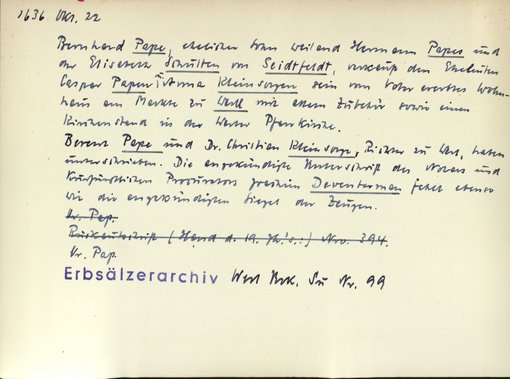 1636 Okt. 22
Bernhard Pape, ehelicher Sohn weiland Hermann Papes und
der Elisabeth Schulten von Seidtfeldt, verkauft den Eheleuten
Casper Papen & Anna Kleinsorgen sein vom Vater ererbtes Wohn-
haus am Markte zu Werl mit allem Zubehör sowie einen
Kirchenstand in der Werler Pfarrkirche.
Berent Pape und Dr. Christian Kleinsorge, Richter zu Werl, haben
unterschrieben. Die angekündigte Unterschrift des Notars und
Kurfürstlichen Procurators Joachim Deventerman fehlt ebenso
wie die angekündigten Siegel der Zeugen.
Or. Pap.
Rückaufschrift (Hand d. 19. Jh's.:) Nro. 394.
Or. Pap
Erbsälzerarchiv Werl Nr. 99